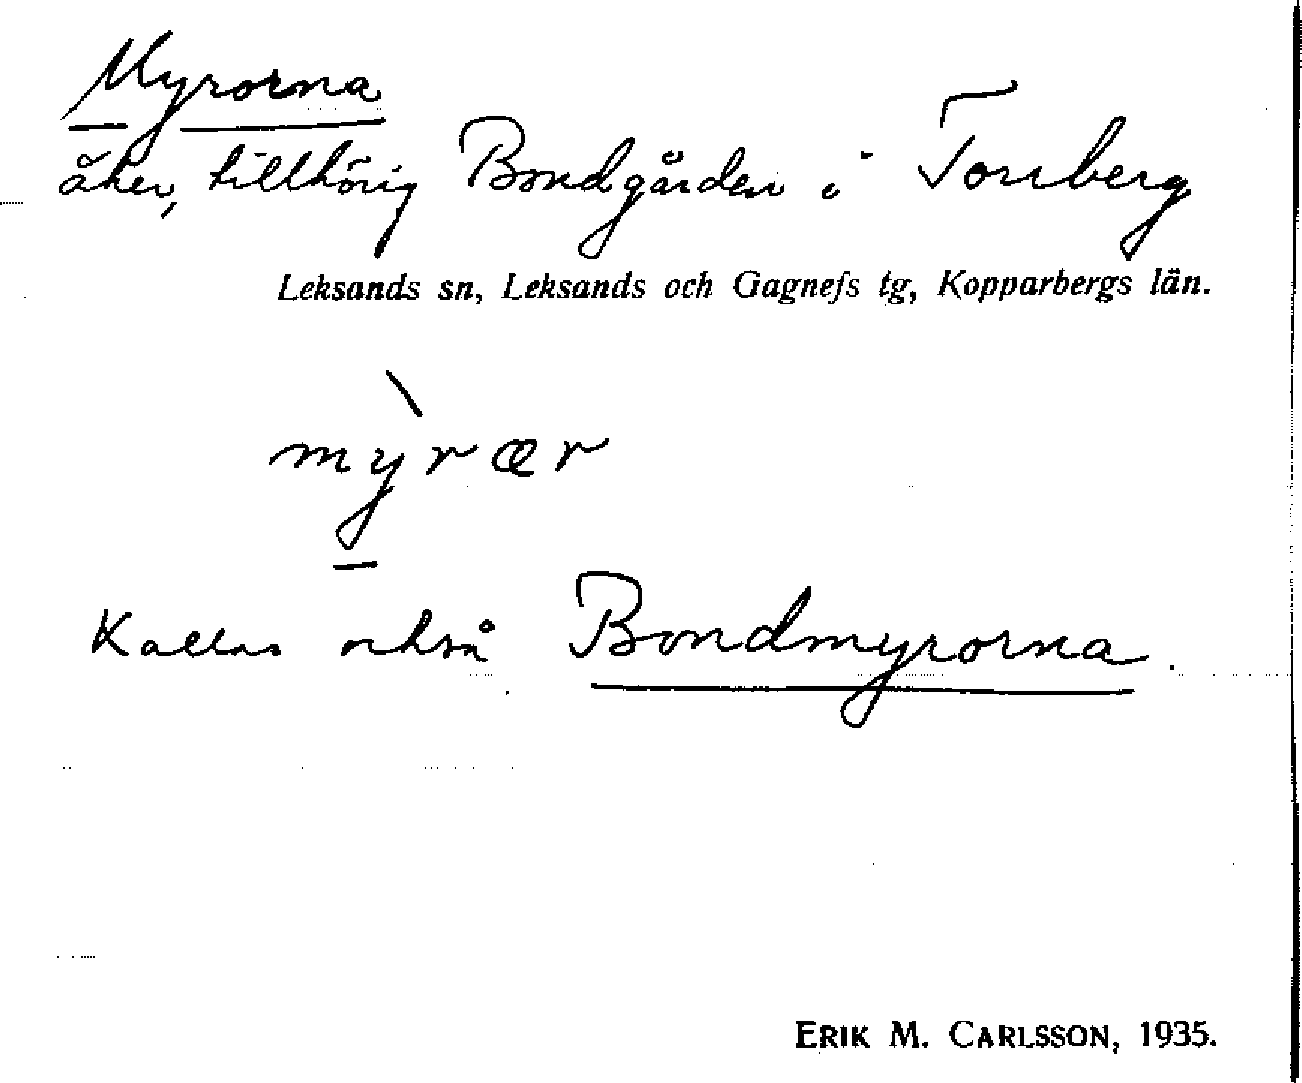 Myrorna
åker, tillhörig Bondgården i Torrberg
Leksands sn, Leksands och Gagnefs tg, Kopparbergs län.
myrær
Kallas också Bondmyrorna.
ERIK M. CARLSSON, 1935.